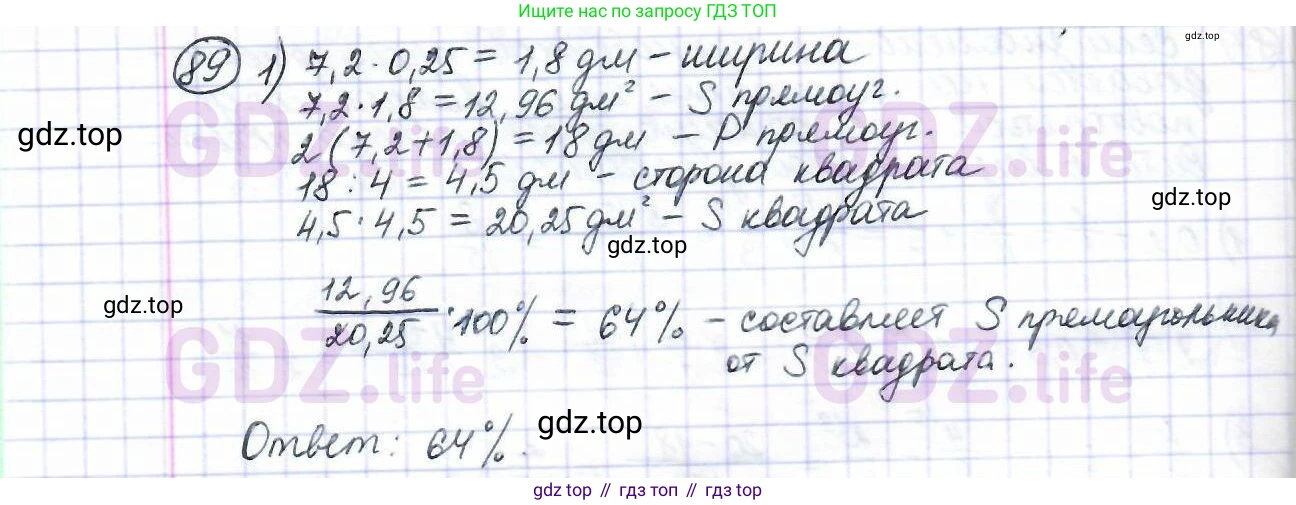 Ищите нас по запросу ГДЗ ТОП
gdz.top
89 1) 7,2 · 0,25 = 1,8 дм – ширина
7,2 · 1,8 = 12,96 дм² – S прямоуг.
gdz.top
2(7,2+1,8) = 18 дм – P прямоуг.
GDZ.life GDZ.life
18 : 4 = 4,5 дм – сторона квадрата
gdz.top
4,5 · 4,5 = 20,25 дм² – S квадрата
gdz.top
gdz.top
12,96/20,25 · 100% = 64% – составляет S прямоугольника
от S квадрата.
GDZ.life GDZ.life
Ответ: 64%.
gdz.top
gdz top // гдз топ // gdz top